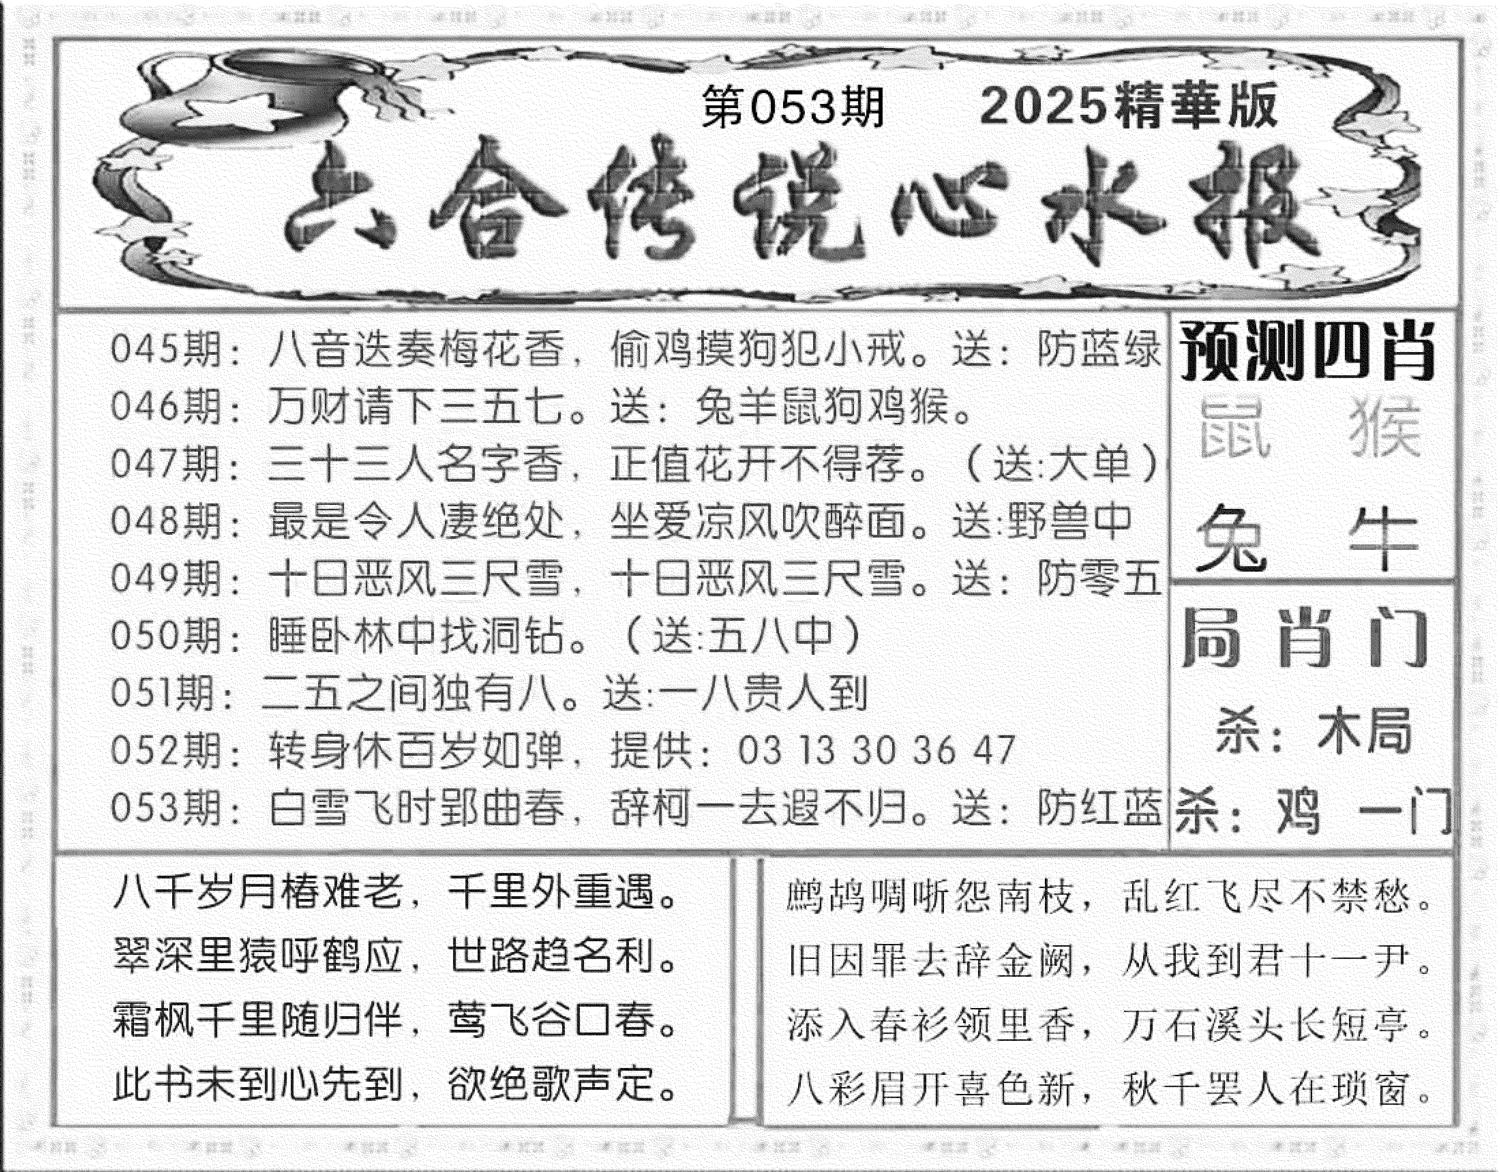 第053期 2025精華版
六合传说心水报
045期：八音迭奏梅花香，偷鸡摸狗犯小戒。送：防蓝绿
046期：万财请下三五七。送：兔羊鼠狗鸡猴。
047期：三十三人名字香，正值花开不得荐。（送:大单）
048期：最是令人凄绝处，坐爱凉风吹醉面。送:野兽中
049期：十日恶风三尺雪，十日恶风三尺雪。送：防零五
050期：睡卧林中找洞钻。（送:五八中）
051期：二五之间独有八。送:一八贵人到
052期：转身休百岁如弹，提供：03 13 30 36 47
053期：白雪飞时郢曲春，辞柯一去遐不归。送：防红蓝
预测四肖
鼠 猴
兔 牛
局肖门
杀：木局
杀：鸡 一门
八千岁月椿难老，千里外重遇。
翠深里猿呼鹤应，世路趋名利。
霜枫千里随归伴，莺飞谷口春。
此书未到心先到，欲绝歌声定。
鹧鸪啁哳怨南枝，乱红飞尽不禁愁。
旧因罪去辞金阙，从我到君十一尹。
添入春衫领里香，万石溪头长短亭。
八彩眉开喜色新，秋千罢人在琐窗。